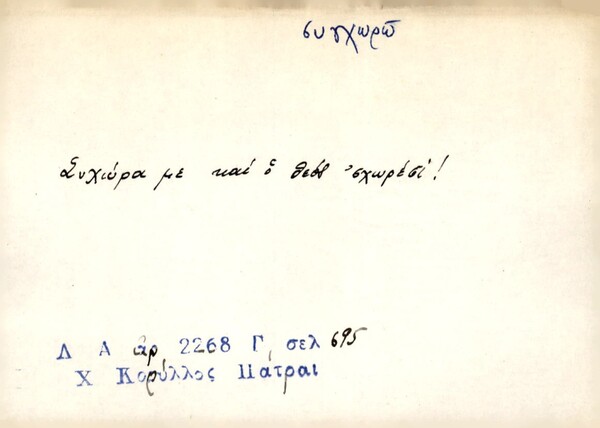 συγχωρῶ
Συχώρα με καί ὁ θεός 'σχωρέσ'!
Λ Α ἀρ 2268 Γ, σελ 695
Χ Κορύλλος Πάτραι